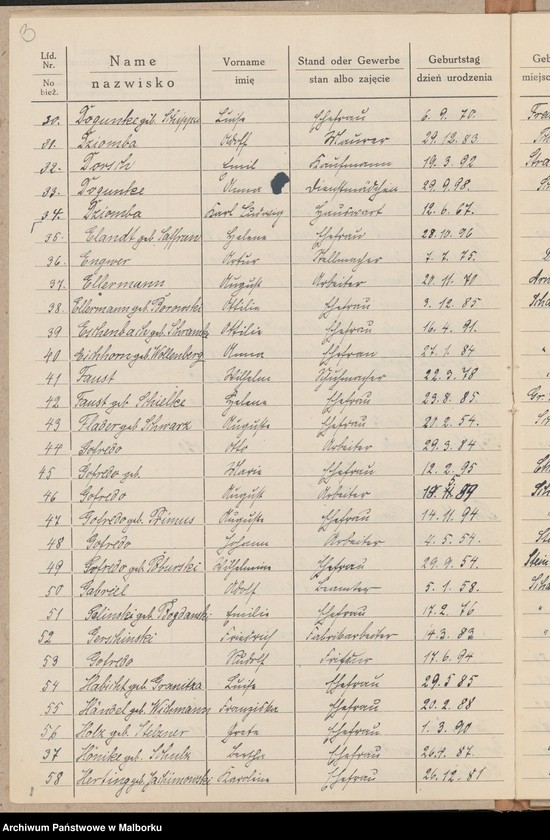 3
Lfd. Nr. Name Vorname Stand oder Gewerbe Geburtstag
No bież. nazwisko imię stan albo zajęcie dzień urodzenia
30. Dogunke geb. Luise Ehefrau 6. 9. 70.
31. Dziomba Adolf Maurer 29. 12. 83.
32. Dorsch Emil Kaufmann 19. 3. 92
33. Dogunke Anna Dienstmädchen 29. 9. 98.
34. Dziomba Karl Ludwig Hauswart 12. 6. 67.
35. Elandt geb. Saffran Helene Ehefrau 28. 10. 96
36. Engwer Artur Stellmacher 7. 7. 75.
37. Ellermann August Arbeiter 20. 11. 70
38. Ellermann geb. Borowski Ottilie Ehefrau 3. 12. 85
39 Eschenbach geb. Schramke Ottilie Ehefrau 16. 4. 91.
40 Eichhorn geb. Wollenberg Anna Ehefrau 27. 1. 84
41 Faust Wilhelm Schuhmacher 22. 3. 78
42 Faust geb. Schielke Helene Ehefrau 23. 8. 85
43 Flader geb. Schwarz Auguste Ehefrau 20. 2. 54.
44 Gofredo Otto Arbeiter 29. 3. 84
45 Gofredo geb. Marie Ehefrau 12. 2. 95
46 Gofredo August Arbeiter 89
47 Gofredo geb. Primus Auguste Ehefrau 14. 11. 94
48 Gofredo Johann Arbeiter 4. 5. 54.
49 Gofredo geb. Wilhelmine Ehefrau 29. 9. 54.
50 Gabriel Adolf Beamter 5. 1. 58.
51 Palinski geb. Bogdanski Emilie Ehefrau 17. 2. 76
52 Gerschinski Friedrich Fabrikarbeiter 14. 3. 83
53 Gofredo Rudolf Friseur 17. 6. 94
54 Habicht geb. Granitza Luise Ehefrau 29. 5 85
55 Händel geb. Widemann Franziska Ehefrau 20. 2. 88
56 Holz geb. Stelzner Grete Ehefrau 1. 3. 90
37 Hönike geb. Schulz Bertha Ehefrau 26. 4. 87.
58 Herting geb. Jachimowski Karoline Ehefrau 26. 12. 81
Archiwum Państwowe w Malborku